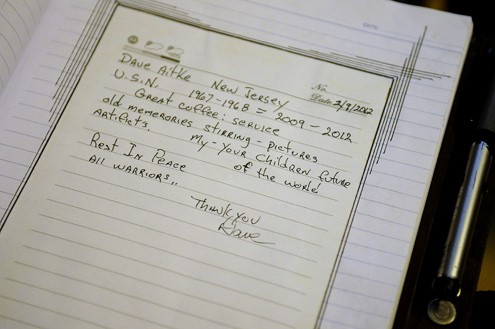 DATE
No.
Dave Aitke New Jersey Date 3/8/2012
U.S.N. 1967-1968 = 2009 - 2012
Great coffee; service
old memerories stirring - pictures
Artificts. My - your children future
of the world
Rest In Peace
All Warriors..
Thank you
Dave